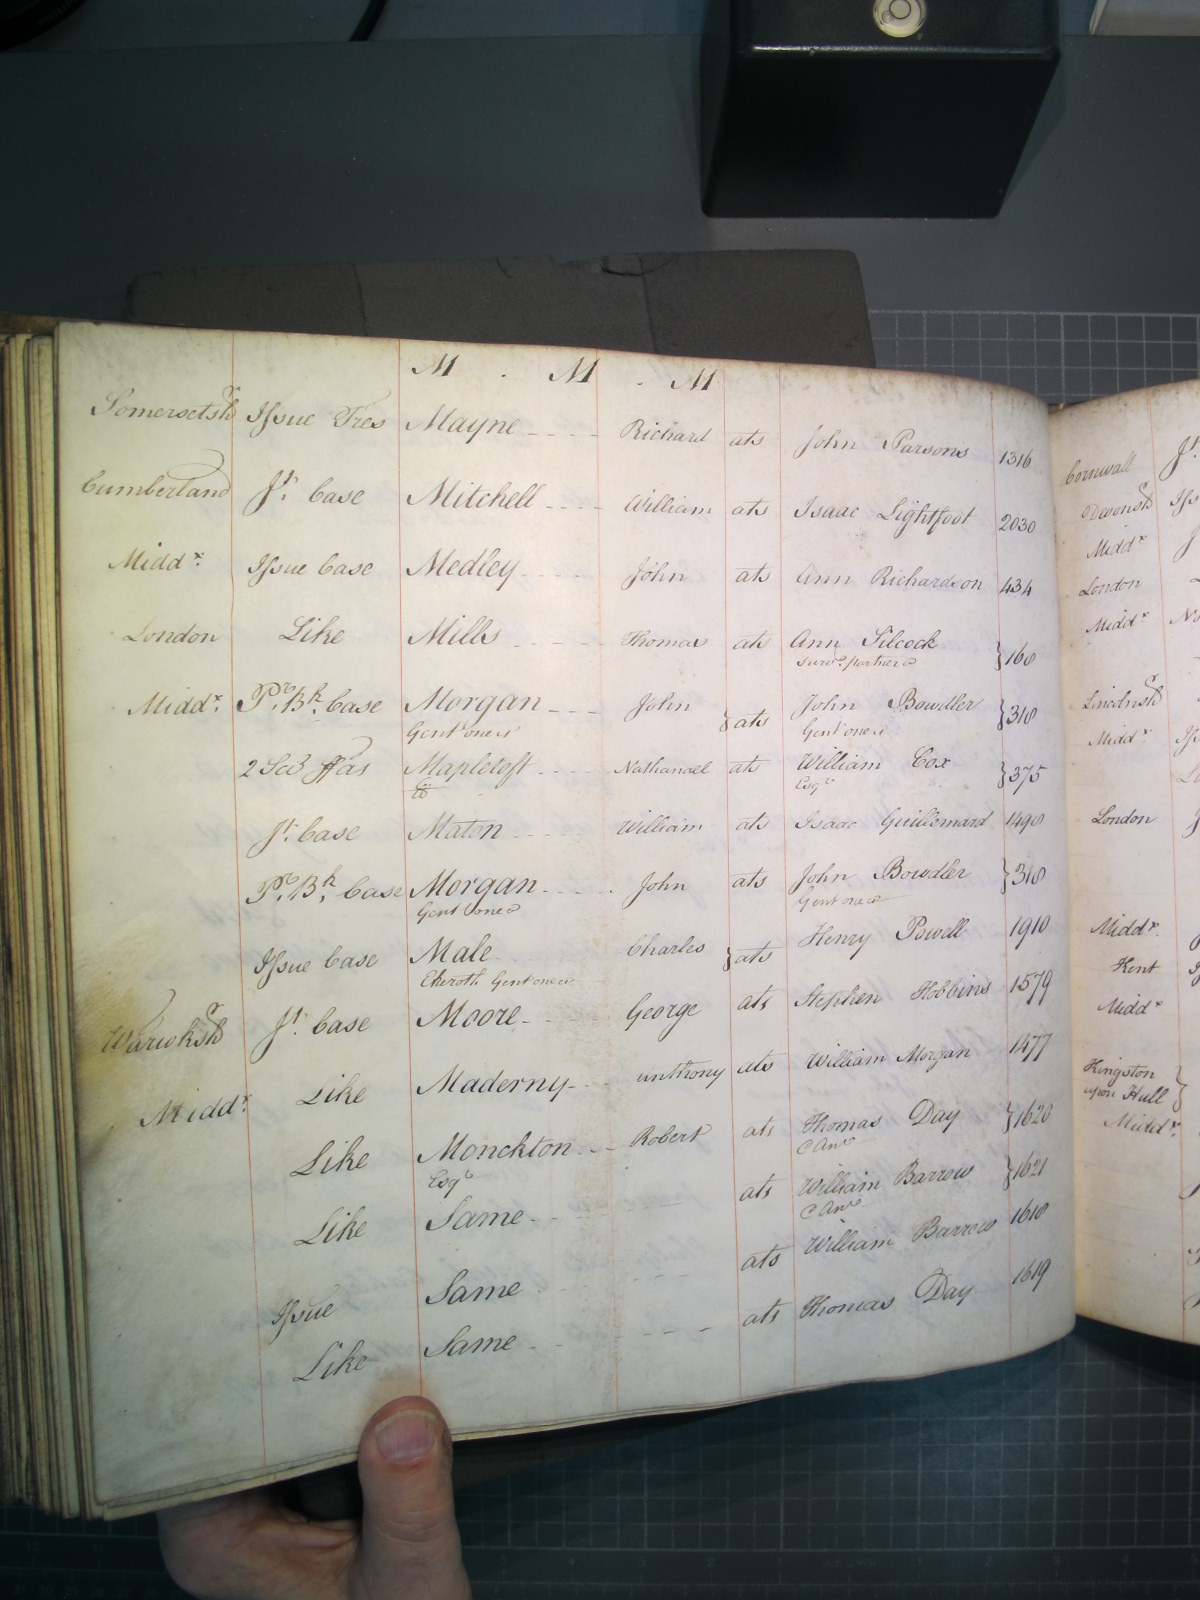 M . M . M
Somersetsh Issue Tres Mayne Richard ats John Parsons 1316
Cumberland Jt. Case Mitchell William ats Isaac Lightfoot 2030
Middx. Issue Case Medley John ats Ann Richardson 434
London Like Mills Thomas ats Ann Silcock } 168
survg. partner &c
Middx. Pr. Bh. Case Morgan John } ats John Bowdler } 318
Gent one &c Gent one &c
2 Sci ffas Mapletoft Nathanael ats William Cox } 375
Esqr
Jt. Case Maton William ats Isaac Guillemard 1498
Pr. Bh. Case Morgan John ats John Bowdler } 318
Gent one &c Gent one &c
Issue Case Male Charles } ats Henry Powell 1910
Gent one &c
Warwksh Jt. Case Moore George ats Stephen Hobbins 1579
Middx. Like Maderny Anthony ats William Morgan 1477
Like Monckton Robert ats Thomas Day } 1620
Esqr
Like Same ats William Barrow } 1621
Issue Same ats William Barrow 1618
Like Same ats Thomas Day 1619
Cornwall
Devonsh
Middx
London
Middx
Lincolnsh
Middx
London
Middx.
Kent
Middx
Kingston
upon Hull }
Middx.